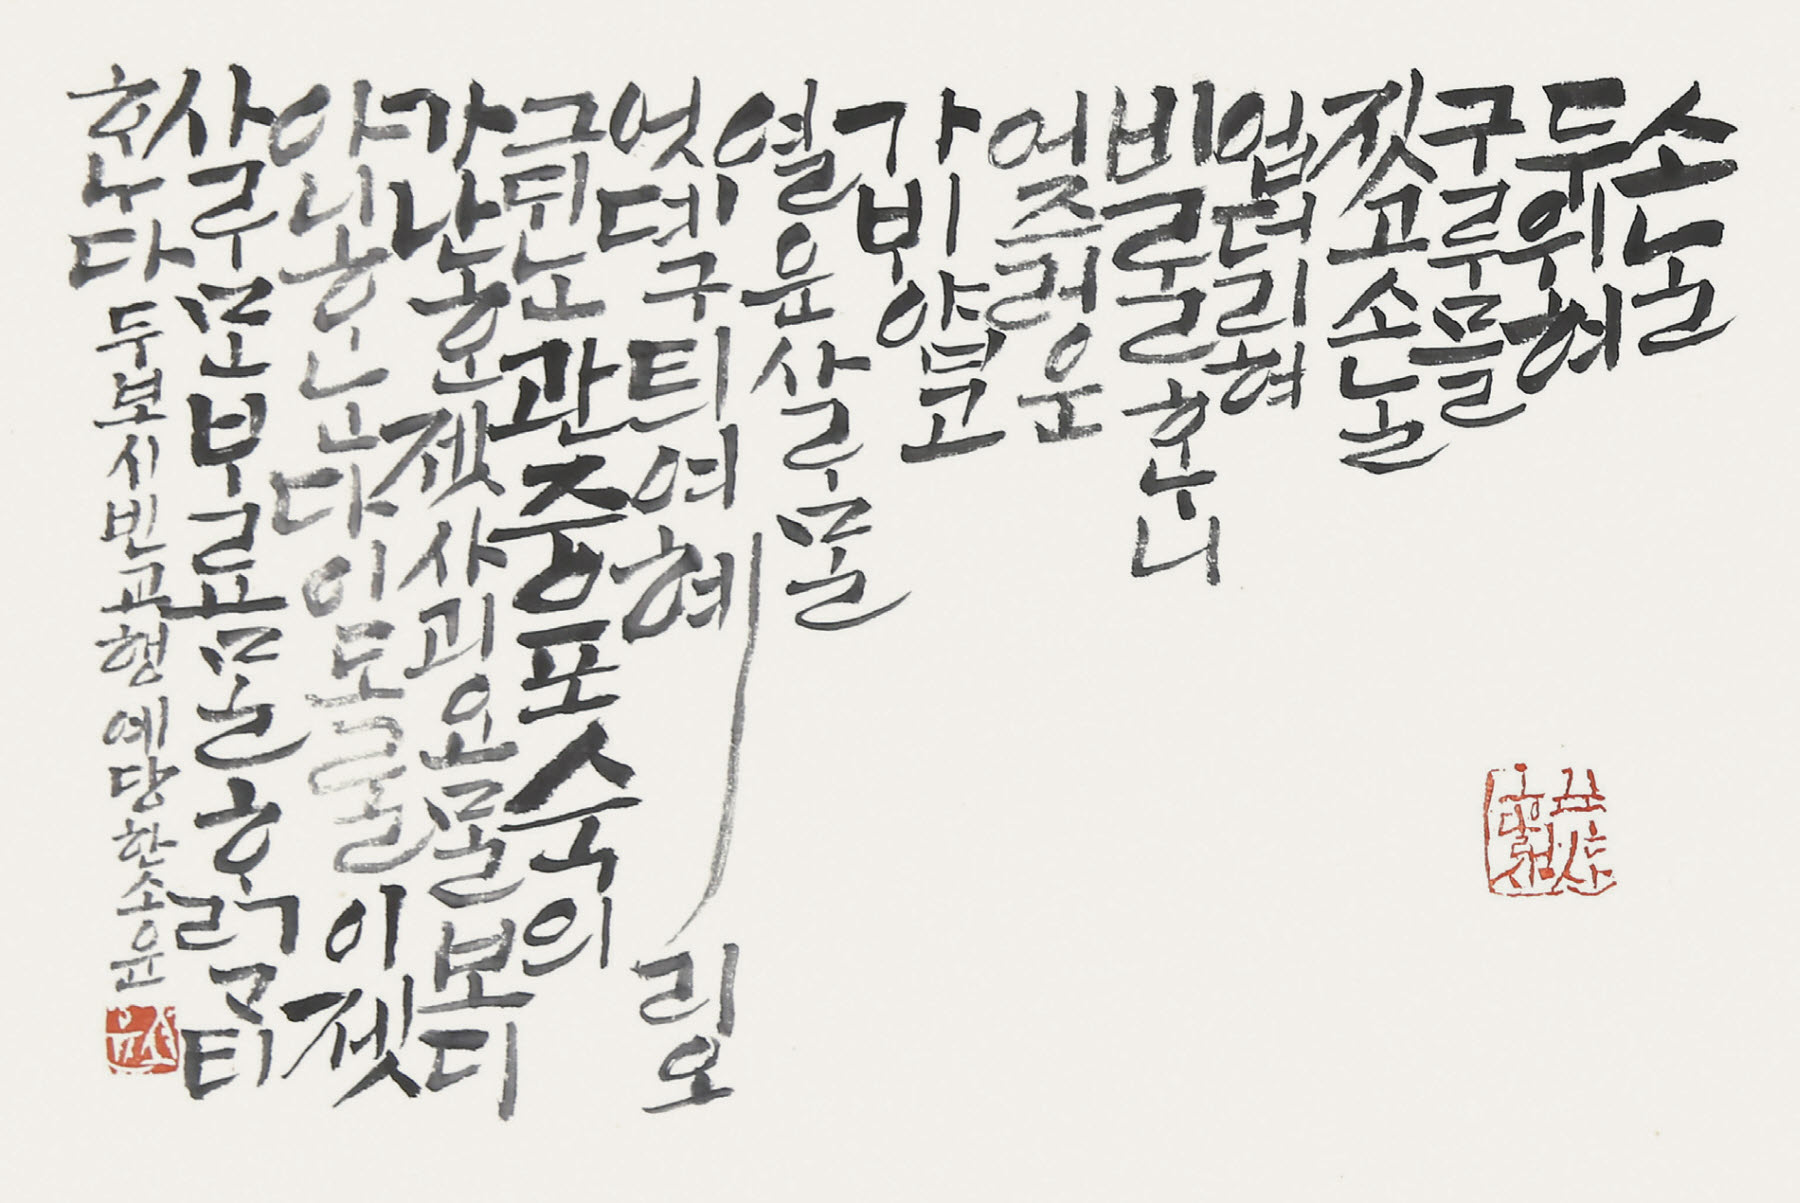 소ᄂᆞᆯ
두위혀
구루믈
짓고소ᄂᆞᆯ
업더리혀
비ᄅᆞᆯᄒᆞᄂᆞ니
어즈러운
가ᄇᆡ얍고
열운사ᄅᆞᄆᆞᆯ
엇뎨구틔여혜리오
그ᄃᆡᄂᆞᆫ관중포숙의
가난ᄒᆞᆫ젯사괴요ᄆᆞᆯ보디
아니ᄒᆞᄂᆞᆫ다이도ᄅᆞᆯ이젯
사ᄅᆞᄆᆞᆫᄇᆞ료ᄆᆞᆯᄒᆞᆰᄀᆞ티
ᄒᆞᄂᆞ다 두보시빈교행 예당한소윤